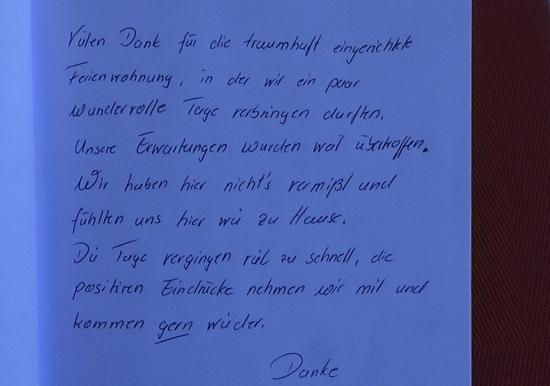 Vielen Dank für die traumhaft eingerichtete
Ferienwohnung, in der wir ein paar
wundervolle Tage verbringen durften.
Unsere Erwartungen wurden weit übertroffen.
Wir haben hier nicht's vermißt und
fühlten uns hier wie zu Hause.
Die Tage vergingen viel zu schnell, die
positiven Eindrücke nehmen wir mit und
kommen gern wieder.
Danke